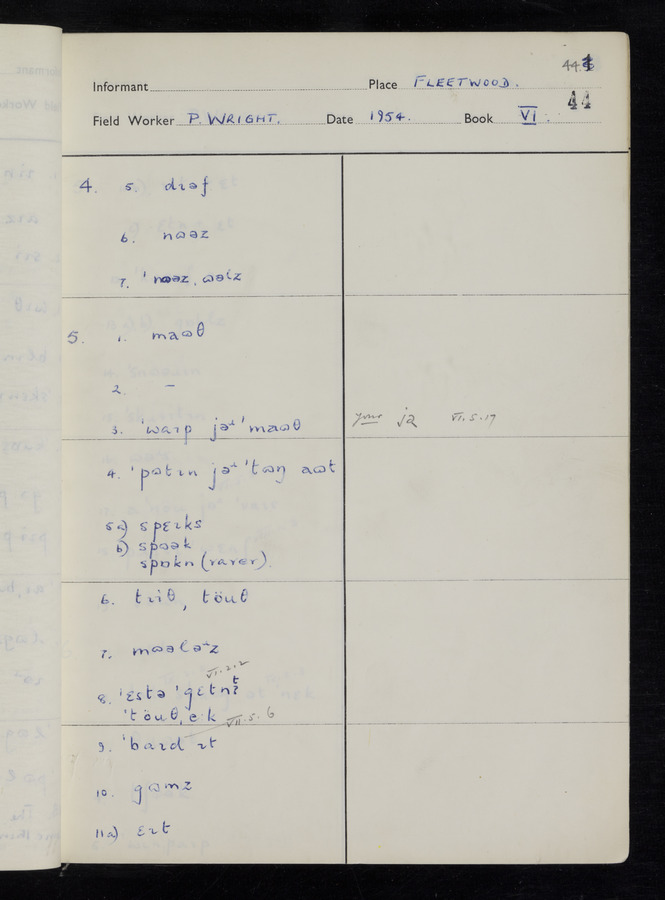 44.
Informant Place FLEETWOOD.
44
Field Worker P. WRIGHT. Date 1954. Book VI.
4. 5. dɩəf
6. nɷəz
7. ˈnɷəz, ɷəlz
5. 1. maɷθ
2. –
3. ˈwaɪp jəˈmaɷθ your jə VI.5.17
4. ˈpɷtɩn jəˈtɷŋ aɷt
5 a) spɛɩks
b) spɷək
spɒkn (rarer).
6. tɩiθ, töuθ
7. mɷələz
8. ˈɛstə ˈgɛtnt VI.2.2
ˈtöuθˌeɩk VII.5.6
9. ˈbaɪd ɩt
10. gɷmz
11a) ɛɩt